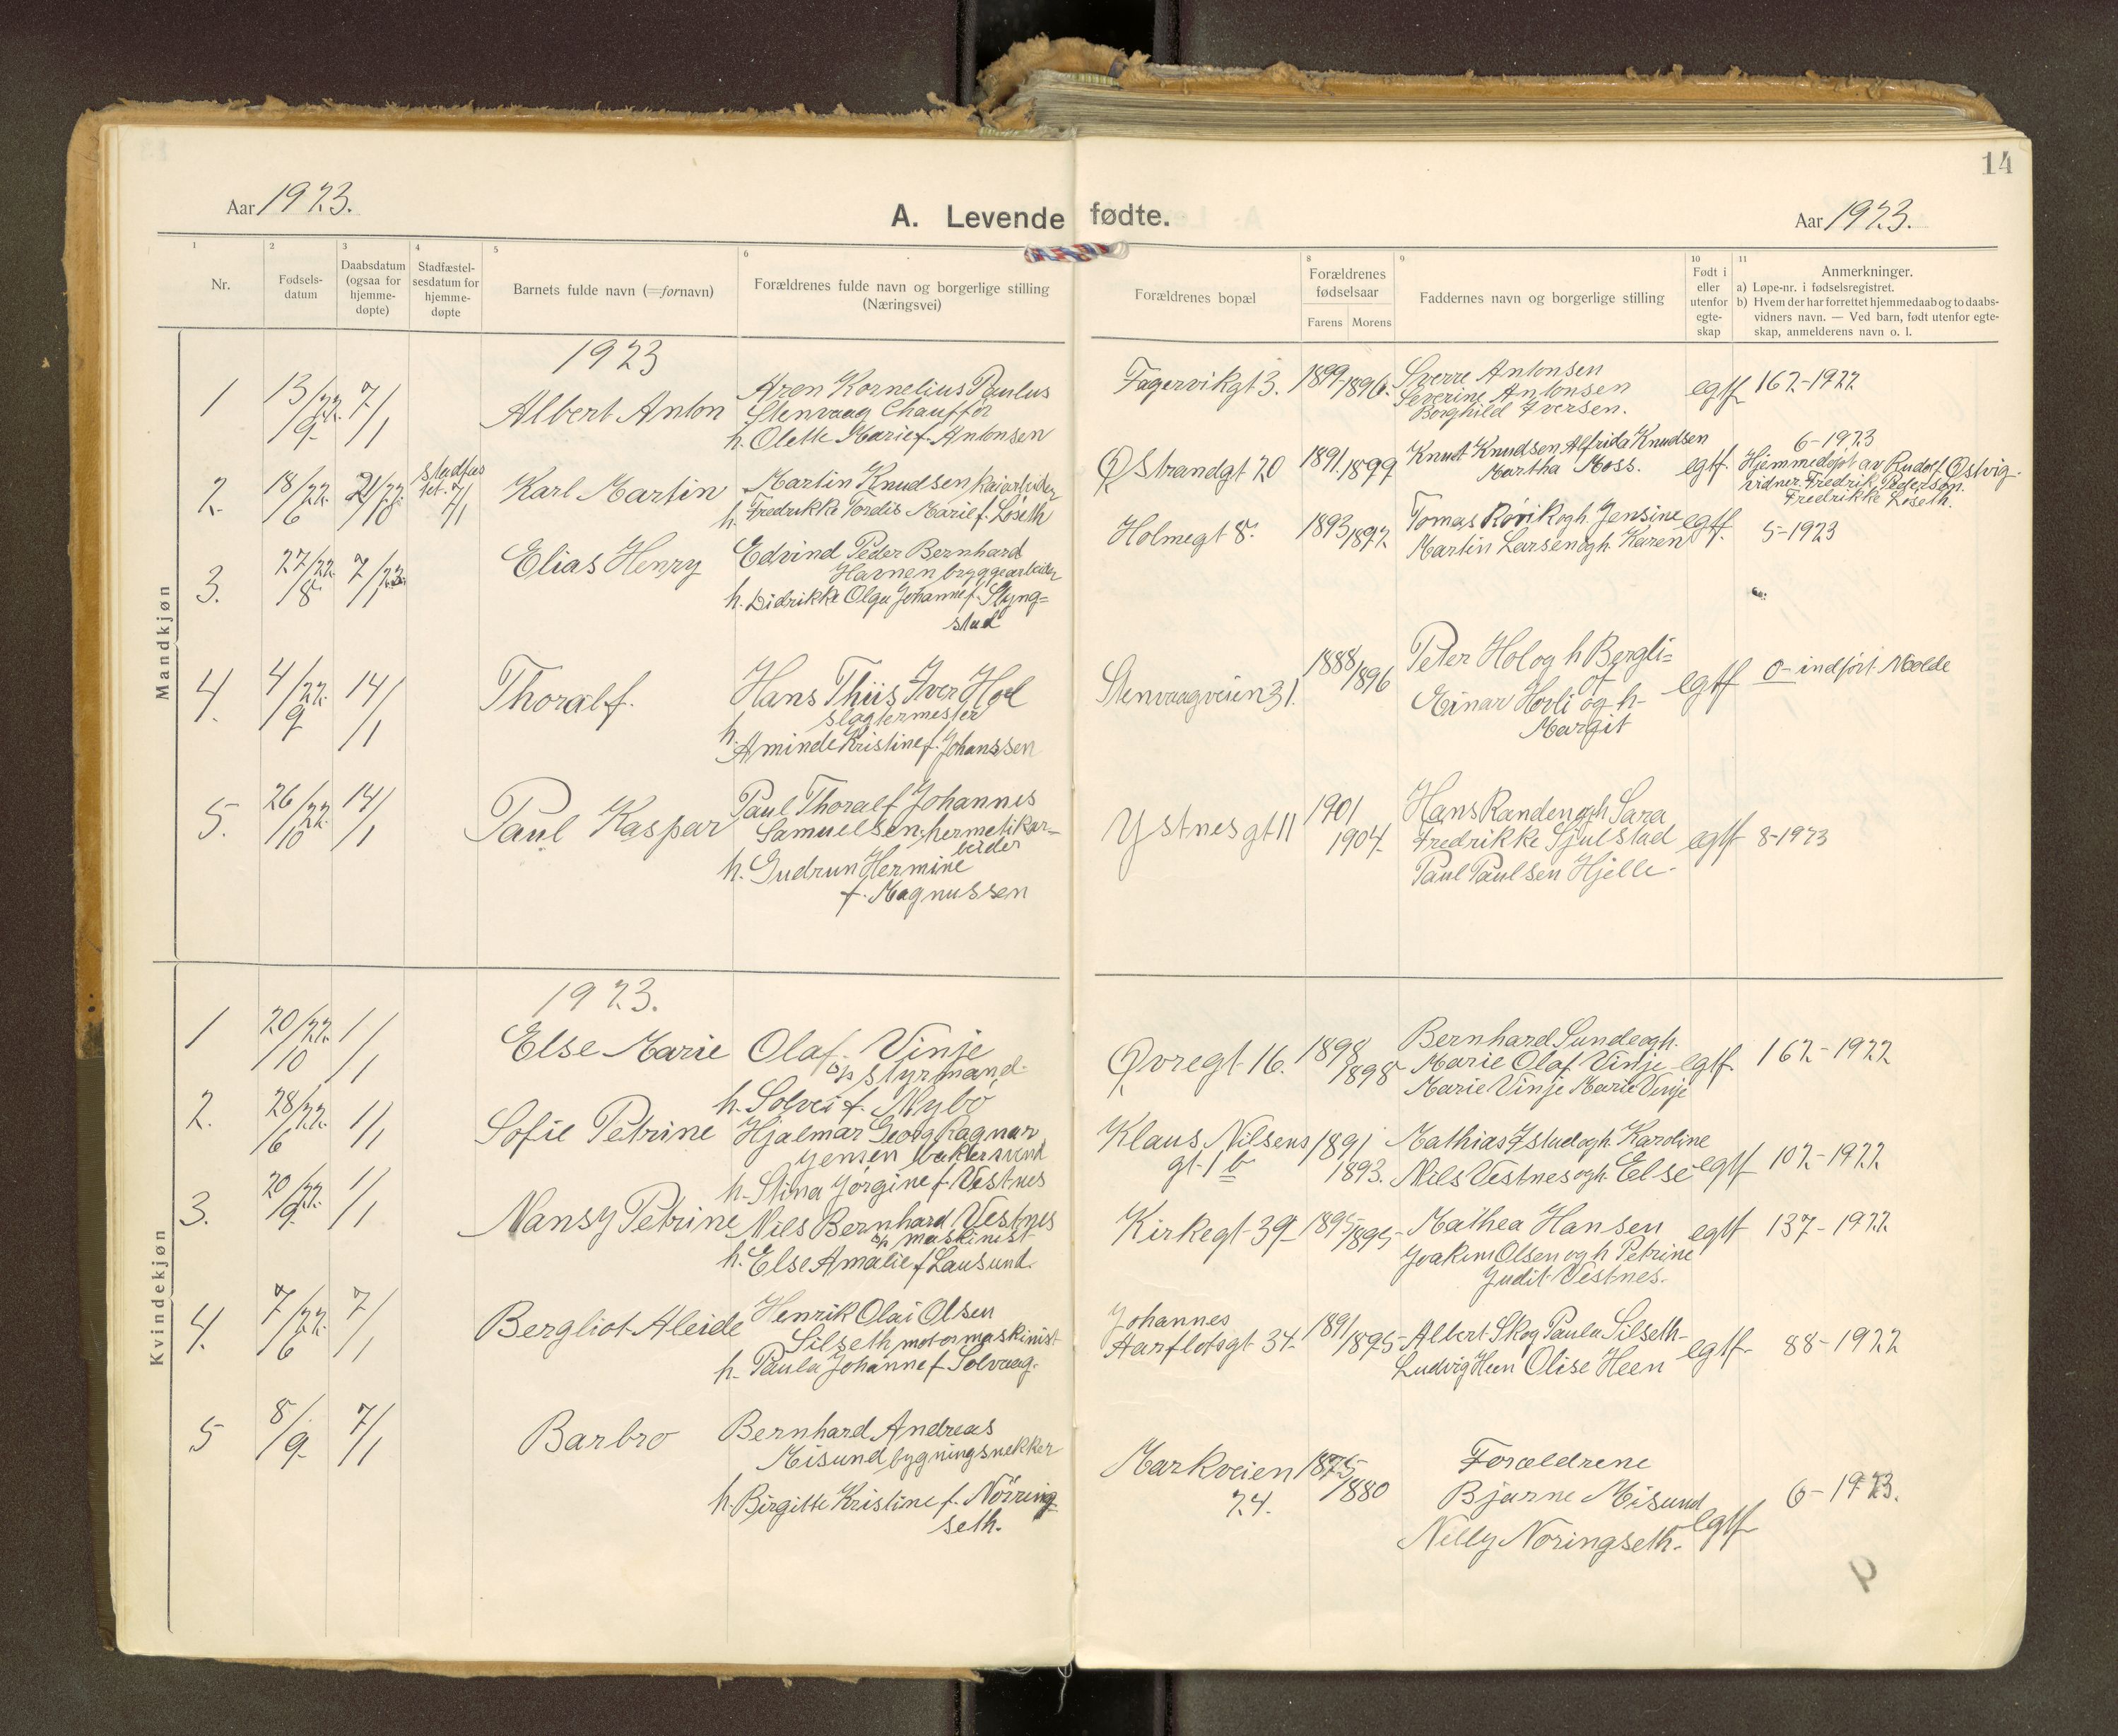 14
Aar 1923.
A. Levende fødte.
Aar 1923.
1
Nr.
2
Fødsels-
datum
3
Daabsdatum
(ogsaa for
hjemme-
døpte)
4
Stadfæstel-
sesdatum for
hjemme-
døpte
5
Barnets fulde navn (=fornavn)
6
Forældrenes fulde navn og borgerlige stilling
(Næringsvei)
Forældrenes bopæl
8
Forældrenes
fødselsaar
Farens
Morens
9
Faddernes navn og borgerlige stilling
10
Født i
eller
utenfor
egte-
skap
11
Anmerkninger.
a) Løpe-nr. i fødselsregistret.
b) Hvem der har forrettet hjemmedaab og to daabs-
vidners navn. — Ved barn, født utenfor egte-
skap, anmelderens navn o. l.
Mandkjøn
1923
1
13/22.
/9.
7/
/1
Albert Anton
Aron Kornelius Paulus
Stenvaag Chauffør
h. Olette Marie f. Antonsen
Fagervikgt 3.
1899-1896.
Sverre Antonsen
Severine Antonsen
Borghild Iversen.
egtf
162-1922
2.
18/22.
6
21/22.
/10
stadfæs
tet. 7/
/1
Karl Martin
Martin Knudsen kaiarbeider
h. Fredrikke Tordis Marie f. Løseth
Ø Strandgt 20
1891. 1899
Knut Knudsen Alfrida Knudsen
Martha Moss.
egtf.
6-1923
Hjemmedøpt av Rudolf Østvig.
vidner Fredrik Pedersen.
Fredrikke Løseth.
3.
27/22.
/8
7/23
/1
Elias Henry
Edvind Peder Bernhard
Havnen bryggearbeider
h. Didrikke Olga Johanne f. Slyng=
stad
Holmegt 8.
1893/1892
Tomas Rövik og h. Jensine
Martin Larsen og h. Karen
egtf.
5-1923
4.
4/22.
/9
14/
/1
Thoralf.
Hans Thiis Iver Hol
slagtermester
h.
Aminde Kristine f. Johanssen
Stenvaagveien 31.
1888/1896
Peter Hol og h Bergli=
ot
Einar Hovli og h-
Margit
egtf
0- indført Nolde
5.
26/22.
/10
14/
/1
Paul Kaspar
Paul Thoralf Johannes
Samuelsen, hermetikar-
beider
h. Gudrun Hermine
f. Magnussen
Ystnesgt 11
1901
1904.
Hans Randen og h Sara
Fredrikke Sjulstad
Paul Paulsen Hjelle-
egtf
8-1923
Kvindekjøn
1923.
1
20/22.
/10
1/
/1
Else Marie
Olaf Vinje
styrmand.
h. Solvei f. Mybö
Øvregt 16.
1898
1898
Bernhard Sunde og h.
Marie Olaf Vinje
Marie Vinje Marie Vinje
egtf.
162-1922
2.
28/22.
/6
1/
/1
Sofie Petrine
Hjalmar Georg Ragnar
Jensen baktersvend
h. Stina Jørgine f. Vestnes
Klaus Nilsens
gt. 1 b
1891
1893.
Mathias Ystad og h. Karoline
Nils Vestnes og h. Else
egtf
102-1922
3.
20/22.
/9.
1/
/1
Nansy Petrine
Nils Bernhard Vestnes
maskinist
h. Else Amalie f Lausund.
Kirkegt 39
1895/1895-
Mathea Hansen
Joakim Olsen og h Petrine
Judit Vestnes.
egtf
137-1922
4.
7/22.
/6
7/
/1
Bergliot Aleide
Henrik Olai Olsen
Silseth, motormaskinist
h. Paula Johanne f Solvaag.
Johannes
Aarflotsgt 34.
1891/1895-
Albert Skog Paula Silseth-
Ludvig Heen Olise Heen
egtf-
88-1922
5
8/
/9
7/
/1
Barbro
Bernhard Andreas
Misund bygningsnekker
h. Birgitte Kristine f. Nörring-
seth.
Markveien
24.
1875/1880
Forældrene
Bjarne Misund
Nilly Noringseth.
egtf
6-1923.